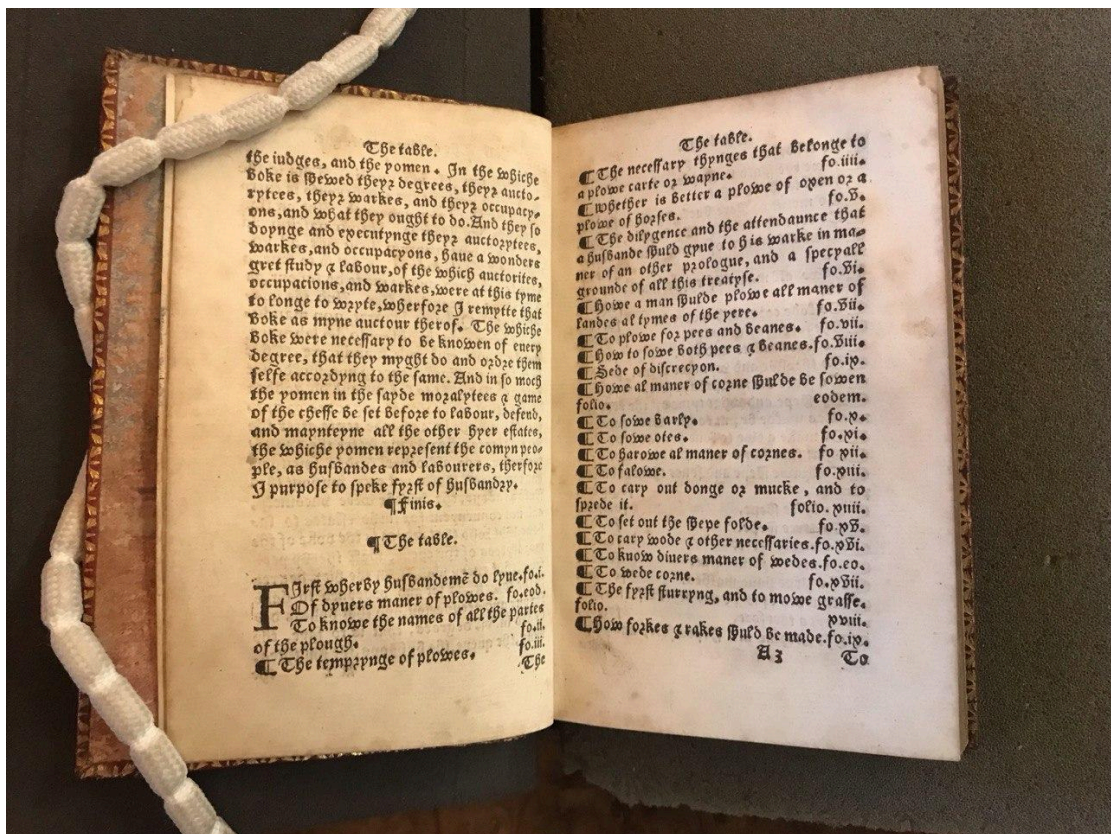 The table.
the iudges, and the yomen. In the whiche
boke is shewed theyr degrees, theyr aucto-
rytees, theyr warkes, and theyr occupacy-
ons, and what they ought to do. And they so
doynge and executynge theyr auctorytees,
warkes, and occupacyons, haue a wonders
gret study ⁊ labour, of the which auctorites,
occupacions, and warkes, were at this tyme
to longe to wryte, wherfore I remytte that
boke as myne auctour therof. The whiche
boke were necessary to be knowen of euery
degree, that they myght do and ordre them
selfe accordyng to the same. And in so moch
the yomen in the sayde moralytees ⁊ game
of the chesse be set before to labour, defend,
and maynteyne all the other hyer estates,
the whiche yomen represent the comyn peo-
ple, as husbandes and labourers, therfore
I purpose to speke fyrst of husbandry.
¶ Finis.
¶ The table.
FIrst wherby husbandemē do lyue. fo.i.
Of dyuers maner of plowes. fo.eod.
To knowe the names of all the parties
of the plough. fo.ii.
¶ The temprynge of plowes. fo.iii.
The
The table.
¶ The necessary thynges that belonge to
a plowe carte or wayne. fo.iiii.
¶ Whether is better a plowe of oxen or a
plowe of horses. fo.v.
¶ The dilygence and the attendaunce that
a husbande shuld gyue to his warke in ma-
ner of an other prologue, and a specyall
grounde of all this treatyse. fo.vi.
¶ Howe a man shulde plowe all maner of
landes al tymes of the yere. fo.vii.
¶ To plowe for pees and beanes. fo.vii.
¶ How to sowe both pees ⁊ beanes. fo.viii.
¶ Sede of discrecyon. fo.ix.
¶ Howe al maner of corne shulde be sowen
folio. eodem.
¶ To sowe barly. fo.x.
¶ To sowe otes. fo.xi.
¶ To harowe al maner of cornes. fo xii.
¶ To falowe. fo.xiii.
¶ To cary out donge or mucke, and to
sprede it. folio. xiiii.
¶ To set out the shepe folde. fo.xv.
¶ To cary wode ⁊ other necessaries. fo.xvi.
¶ To know diuers maner of wedes. fo.eo.
¶ To wede corne. fo.xvii.
¶ The fyrst sturryng, and to mowe grasse.
folio. xviii.
¶ How forkes ⁊ rakes shuld be made. fo.ix.
A3 To